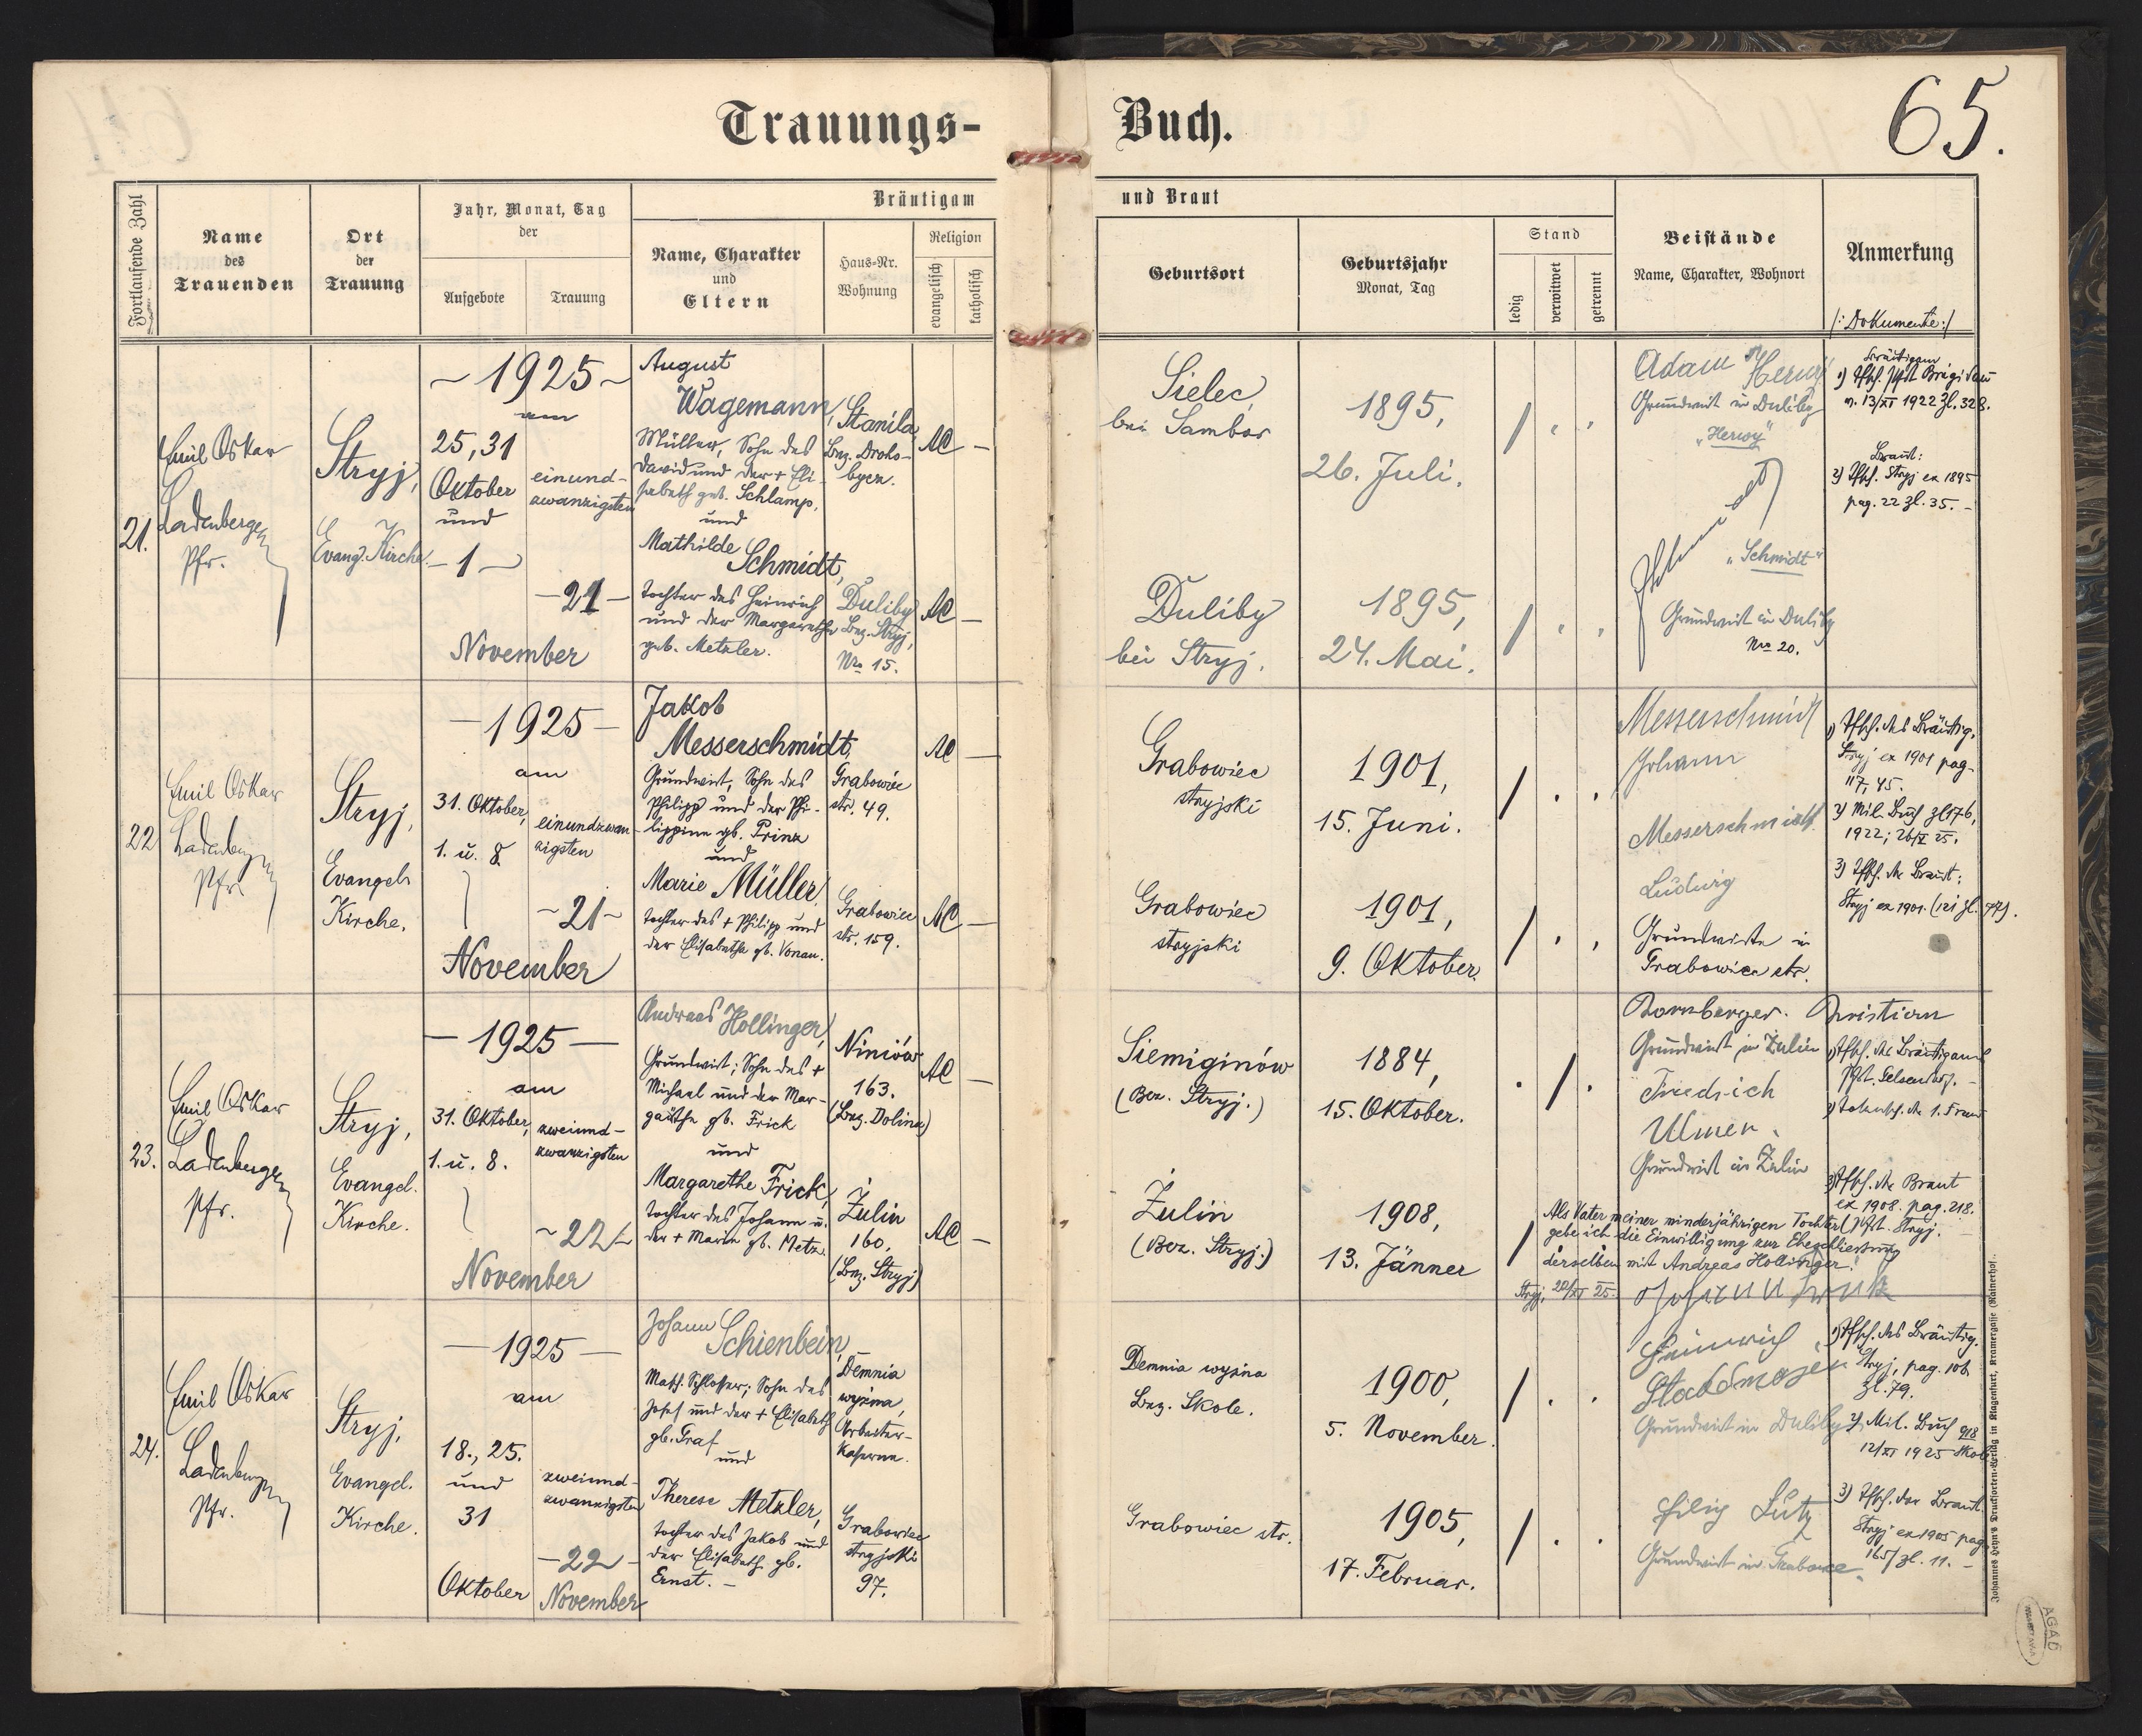 Trauungs-
Buch.
65.
Fortlaufende Zahl
Name
des
Trauenden
Ort
der
Trauung
Jahr, Monat, Tag
der
Aufgebote
Trauung
Bräutigam
Name, Charakter
und
Eltern
Haus-Nr.
Wohnung
Religion
evangelisch
katholisch
und Braut
Geburtsort
Geburtsjahr
Monat, Tag
Stand
ledig
verwitwet
getrennt
Beistände
Name, Charakter, Wohnort
Anmerkung
/: Dokumente :/
21.
Emil Oskar
Ladenberger
Pfr.
Stryj,
Evang. Kirche
- 1925 -
am
25, 31
Oktober
und
- 1 -
einund-
zwanzigsten
- 21 -
November
August
Wagemann,
Müller, Sohn des
David und der + Eli-
sabeth geb. Schlamp.
und
Mathilde
Schmidt,
Tochter des Heinrich
und der Margarethe
geb. Metzler.
Stanila,
Bez. Droho-
bycz.
Duliby
Bez. Stryj,
Nro 15.
AC -
AC -
Sielec,
bei Sambor
1895,
26. Juli.
Duliby
bei Stryj.
1895,
24. Mai.
Adam Herwy
Grundwirt in Duliby
"Herwy"
"Schmidt"
Grundwirt in Duliby
Nro 20.
Bräutigam
v. 13/XI 1922 Zl. 328.
Braut:
2) Tfsch. Stryj ex 1895
pag. 22 Zl. 35. -
22
Emil Oskar
Ladenberger
Pfr.
Stryj,
Evangel.
Kirche.
- 1925 -
am
31. Oktober,
1. u. 8.
einundzwan-
zigsten
- 21 -
November
Jakob
Messerschmidt,
Grundwirt, Sohn des
Philipp und der Phi-
lippine gb. Prinz
und
Marie Müller,
Tochter des + Philipp und
der Elisabethe gb. Vonau.
Grabowiec
str. 49.
Grabowiec
str. 159.
AC -
AC -
Grabowiec
stryjski
1901,
15. Juni.
Grabowiec
stryjski
1901,
9. Oktober.
Messerschmidt
Johann
Messerschmidt
Ludwig
Grundwirte in
Grabowiec str.
1) Tfsch. des Bräutig.
Stryj ex 1901 pag.
117, 45.
2) Mil. Buch Zl 176,
1922; 26/X 25.
3) Tfsch. der Braut:
Stryj ex 1901. (121 Zl. 77).
23.
Emil Oskar
Ladenberger
Pfr.
Stryj,
Evangel.
Kirche.
- 1925 -
am
31. Oktober,
1. u. 8.
zweiund-
zwanzigsten
- 22 -
November
Andreas Hollinger,
Grundwirt; Sohn des +
Michael und der Mar-
gathe gb. Frick
und
Margarethe Frick,
Tochter des Johann u.
der + Marie gb. Metz.
Niniów
163.
(Bez. Dolina)
Żulin
160.
(Bez. Stryj)
AC -
AC -
Siemiginów
(Bez. Stryj.)
1884,
15. Oktober.
Żulin
(Bez. Stryj.)
1908,
13. Jänner
Dornberger. Christian
Grundwirt in Żulin
Friedrich
Ulmer.
Grundwirt in Żulin
1) Tfsch. des Bräutigams
Pfgt. Gelsendorf. -
2) Totensch. der 1. Frau
3) Tfsch. der Braut
ex 1908. pag. 218.
Pfgt. Stryj. -
Als Vater meiner minderjährigen Tochter
gebe ich die Einwilligung zur Eheschliessung
derselben mit Andreas Hollinger.
Stryj, 20/XI 25.
Johann Frick
24.
Emil Oskar
Ladenberger
Pfr.
Stryj,
Evangel.
Kirche.
- 1925 -
am
18., 25.
und
31
Oktober
zweiund-
zwanzigsten
- 22 -
November
Johann Schienbein,
Masch. Schlosser; Sohn des
Josef und der + Elisabeth
gb. Graf
und
Therese Metzler,
Tochter des Jakob und
der Elisabeth gb.
Ernst. -
Demnia
wyżna,
Arbeiter-
Kaserne.
Grabowiec
stryjski
97.
Demnia wyżna
Bez. Skole.
1900,
5. November.
Grabowiec str.
1905,
17. Februar.
Heinrich
Stadtmoser
Grundwirt in Duliby
Filip Lutz
Grundwirt in Grabowce.
1) Tfsch. des Bräutig.
Stryj, pag. 106
Zl. 79.
2) Mil. Buch 918
12/XI 1925 Skole
3) Tfsch. der Braut
Stryj ex 1905 pag
165/ Zl. 11. -
Johannes Heyn's Drucksorten-Verlag in Klagenfurt, Kramergasse (Rainerhof).
AGAD
WARSZAWA